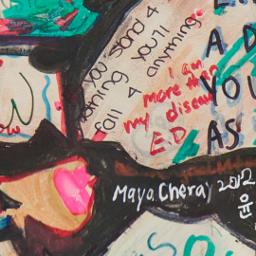 you stand 4
nothing you'll
fall 4 anything.
I am
more than
my disease
E.D
A D
YOU
AS
Maya.Cheray 2012
윤